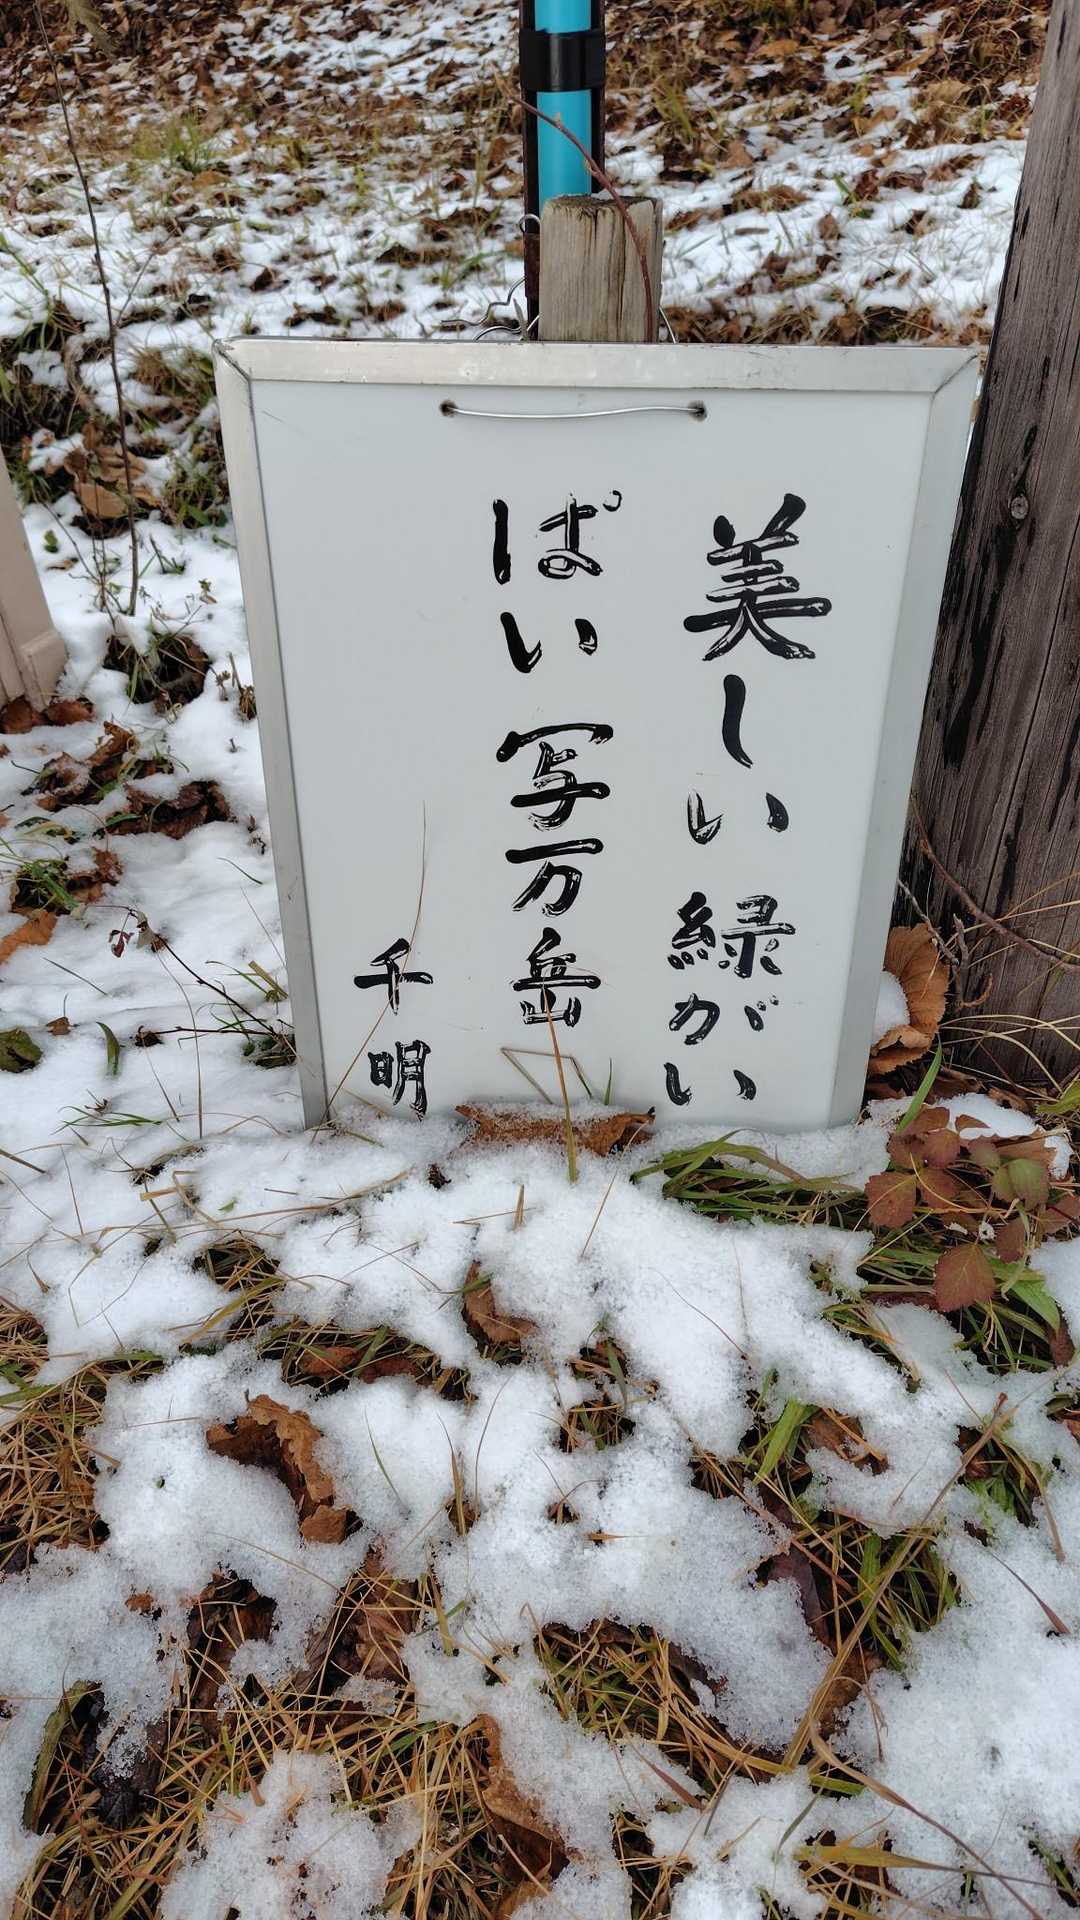 美しい緑がい
ぱい写万岳
千明